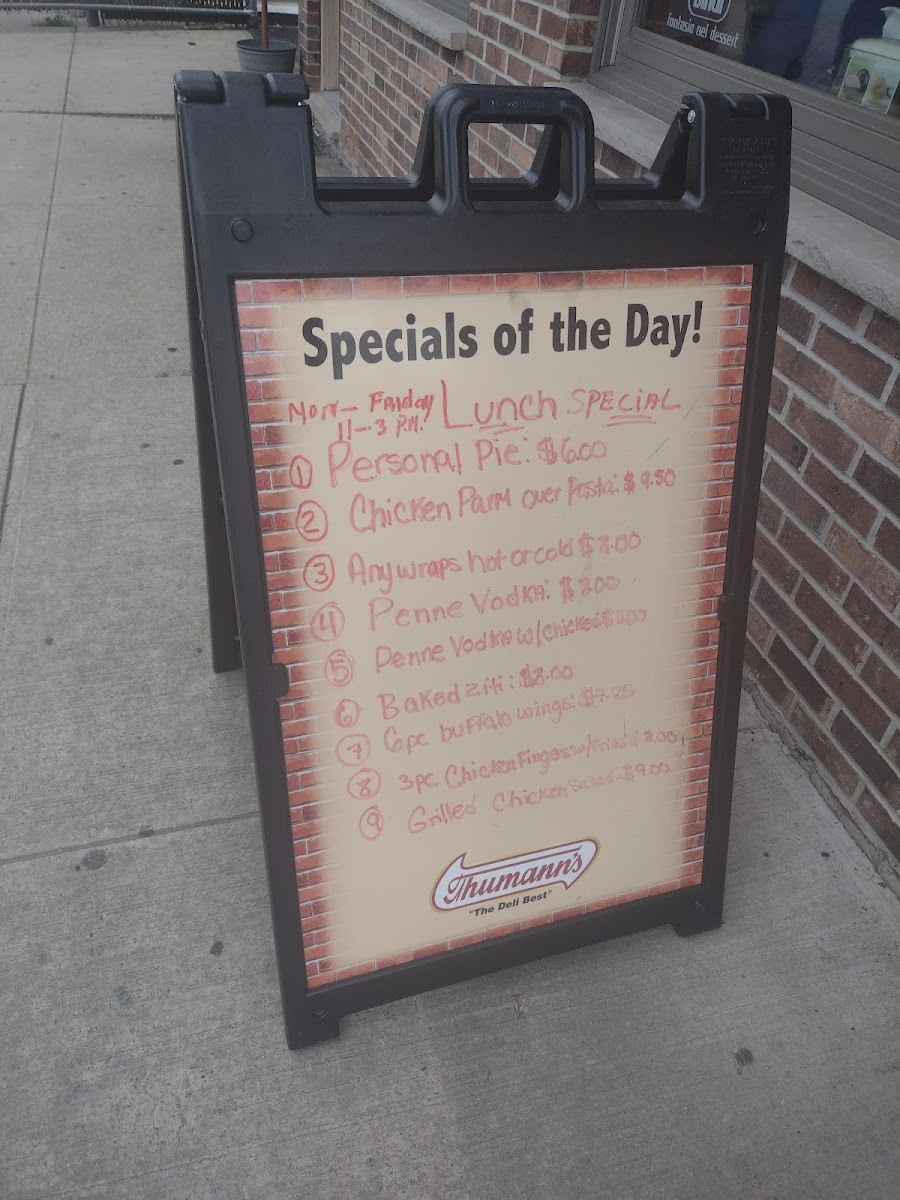 Bindi
fantasia nel dessert
Specials of the Day!
Mon - Friday Lunch SPECIAL
11-3 P.M.
① Personal Pie: $6.00
② Chicken Parm over Pasta: $9.50
③ Any wraps hot or cold $8.00
④ Penne Vodka: $8.00
⑤ Penne Vodka w/chicken:
⑥ Baked ziti: $8.00
⑦ 6pc buffalo wings: $7.25
⑧ 3pc Chicken Fingers w/Fries $ 8.00
⑨ Grilled Chicken Salad: $9.00
Thumann's
"The Deli Best"